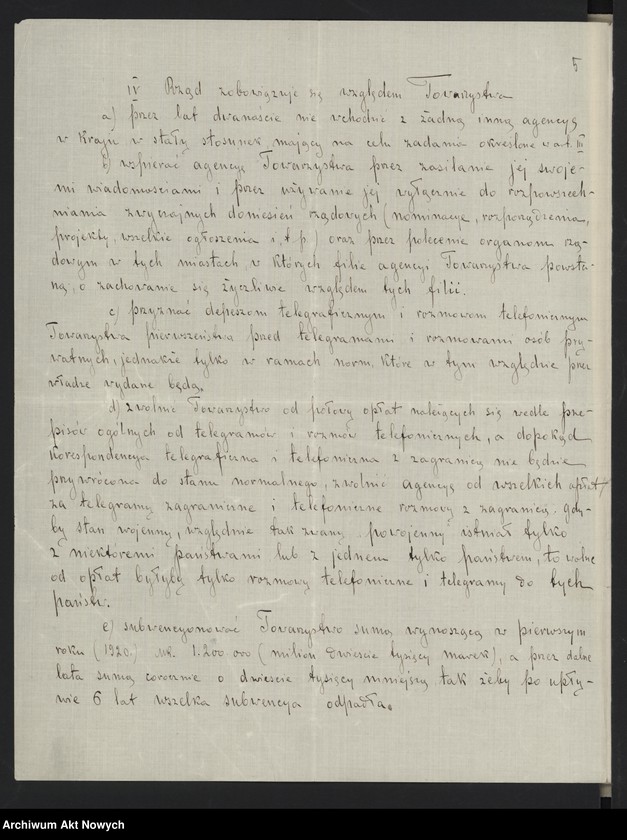 5
IV Rząd zobowiązuje się względem Towarzystwa
a) przez lat dwanaście nie wchodzić z żadną inną agencyą
w kraju w stały stosunek mający na celu zadania określone w art. III
b) wspierać agencyę Towarzystwa przez zasilanie jej swoje-
mi wiadomościami i przez używanie jej wyłącznie do rozpowszech-
niania zwyczajnych doniesień rządowych (nominacye, rozporządzenia,
projekty, wszelkie ogłoszenia i t. p.) oraz przez polecenie organom rzą-
dowym w tych miastach, w których filie agencyi Towarzystwa powsta-
ną, o zachowanie się życzliwe względem tych filii.
c) przyznać depeszom telegraficznym i rozmowom telefonicznym
Towarzystwa pierwszeństwo przed telegramami i rozmowami osób pry-
watnych, jednakże tylko w ramach norm, które w tym względzie przez
władze wydane będą.
d) zwolnić Towarzystwo od połowy opłat należących się wedle prze-
pisów ogólnych od telegramów i rozmów telefonicznych, a dopokąd
korespondencya telegraficzna i telefoniczna z zagranicą nie będzie
przywrócona do stanu normalnego, zwolnić agencyę od wszelkich opłat
za telegramy zagraniczne i telefoniczne rozmowy z zagranicą. gdy-
by stan wojenny, względnie tak zwany „powojenny" istniał tylko
z niektóremi państwami lub z jednem tylko państwem, to wolne
od opłat byłyby tylko rozmowy telefoniczne i telegramy do tych
państw.
e) subwencyonować Towarzystwo sumą wynoszącą w pierwszym
roku (1920.) Mk. 1.200 000 (milion dwieście tysięcy marek), a przez dalsze
lata sumą corocznie o dwieście tysięcy mniejszą tak żeby po upły-
wie 6 lat wszelka subwencya odpadła.
Archiwum Akt Nowych